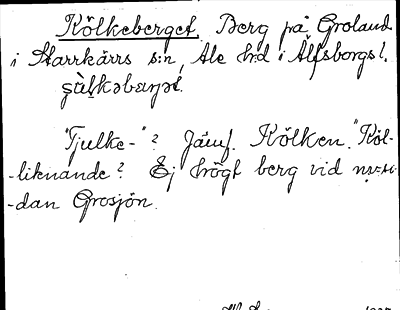 Kölkeberget. Berg på Groland
i Starrkärrs s:n, Ale h:d i Älfsborgs l.
"Tjulke-"? Jämf. Kölken. "Köl-
-liknande? Ej högt berg vid
-dan Grosjön.